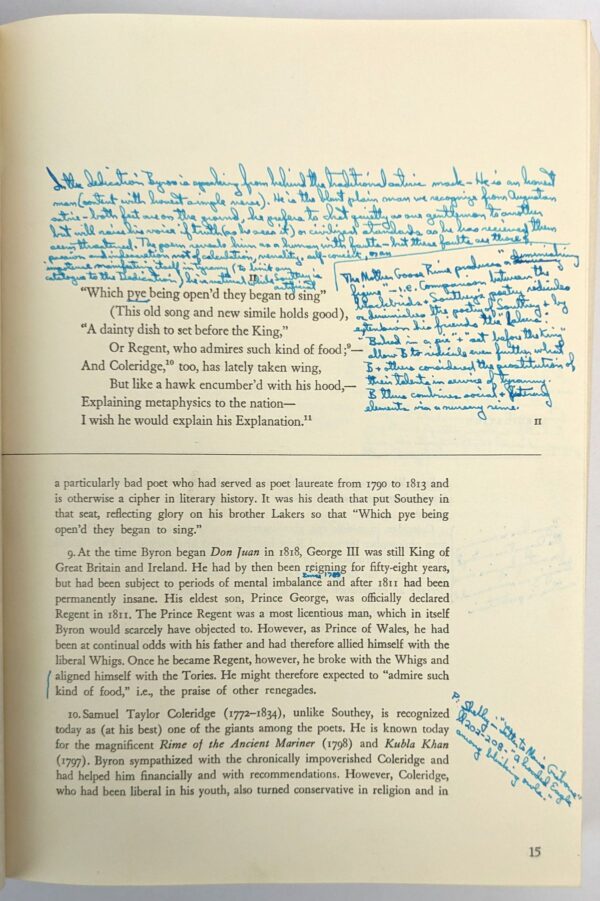 In the dedication Byron is speaking from behind the traditional satiric mask - He is an honest
man (content with honest simple verse). He is the blunt plain man we recognize from Augustan
satire - both feet are on the ground, he prefers to chat quietly as one gentleman to another
but will raise his voice if truth (as he sees it) or civilized standards as he has received them
seem threatened. The poem reveals him as a human with faults - but these faults are those of
passion and information not of calculation, venality, self-conceit, or an
itself in (to link
catalogue to the Dedication), he is natural while Southey is
artificial
The Mother Goose Rime produces "diminishing
" - i.e. Comparison between the
blackbirds + Southey's poetry ridicules
or diminishes the poetry of Southey + by
extension his friends the "Lakers."
"Baked in a pie" + "set before the King"
allow B to ridicule even further what
B + others considered the prostitution of
their talents in service of tyranny.
B thus combines social + literary
elements via a nursery rime.
"Which pye being open'd they began to sing"
(This old song and new simile holds good),
"A dainty dish to set before the King,"
Or Regent, who admires such kind of food;⁹—
And Coleridge,¹⁰ too, has lately taken wing,
But like a hawk encumber'd with his hood,—
Explaining metaphysics to the nation—
I wish he would explain his Explanation.¹¹
II
a particularly bad poet who had served as poet laureate from 1790 to 1813 and
is otherwise a cipher in literary history. It was his death that put Southey in
that seat, reflecting glory on his brother Lakers so that "Which pye being
open'd they began to sing."
9. At the time Byron began Don Juan in 1818, George III was still King of
Great Britain and Ireland. He had by then been reigning for fifty-eight years,
since 1788
but had been subject to periods of mental imbalance and after 1811 had been
permanently insane. His eldest son, Prince George, was officially declared
Regent in 1811. The Prince Regent was a most licentious man, which in itself
Byron would scarcely have objected to. However, as Prince of Wales, he had
been at continual odds with his father and had therefore allied himself with the
liberal Whigs. Once he became Regent, however, he broke with the Whigs and
aligned himself with the Tories. He might therefore expected to "admire such
kind of food," i.e., the praise of other renegades.
10. Samuel Taylor Coleridge (1772–1834), unlike Southey, is recognized
today as (at his best) one of the giants among the poets. He is known today
for the magnificent Rime of the Ancient Mariner (1798) and Kubla Khan
(1797). Byron sympathized with the chronically impoverished Coleridge and
had helped him financially and with recommendations. However, Coleridge,
who had been liberal in his youth, also turned conservative in religion and in
P. Shelley - "Letter to Maria Gisborne"
ll 202-208 - "a hooded Eagle
among blinking owls."
15